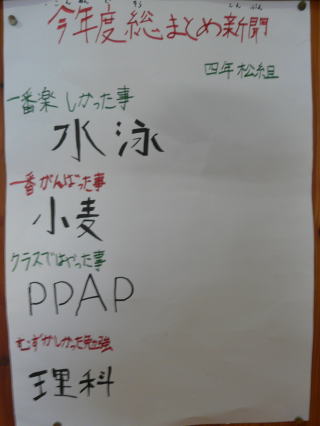 今年度総まとめ新聞
四年松組
一番楽しかった事
水泳
一番がんばった事
小麦
クラスではやった事
PPAP
むずかしかった勉強
理科